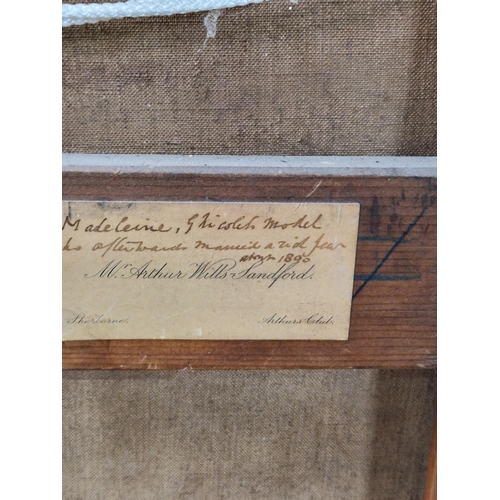 Madeleine, Nicolet's model
afterwards married a rich Jew
about 1890
Mr. Arthur Wills Sandford.
Sherborne. Arthurs Club.